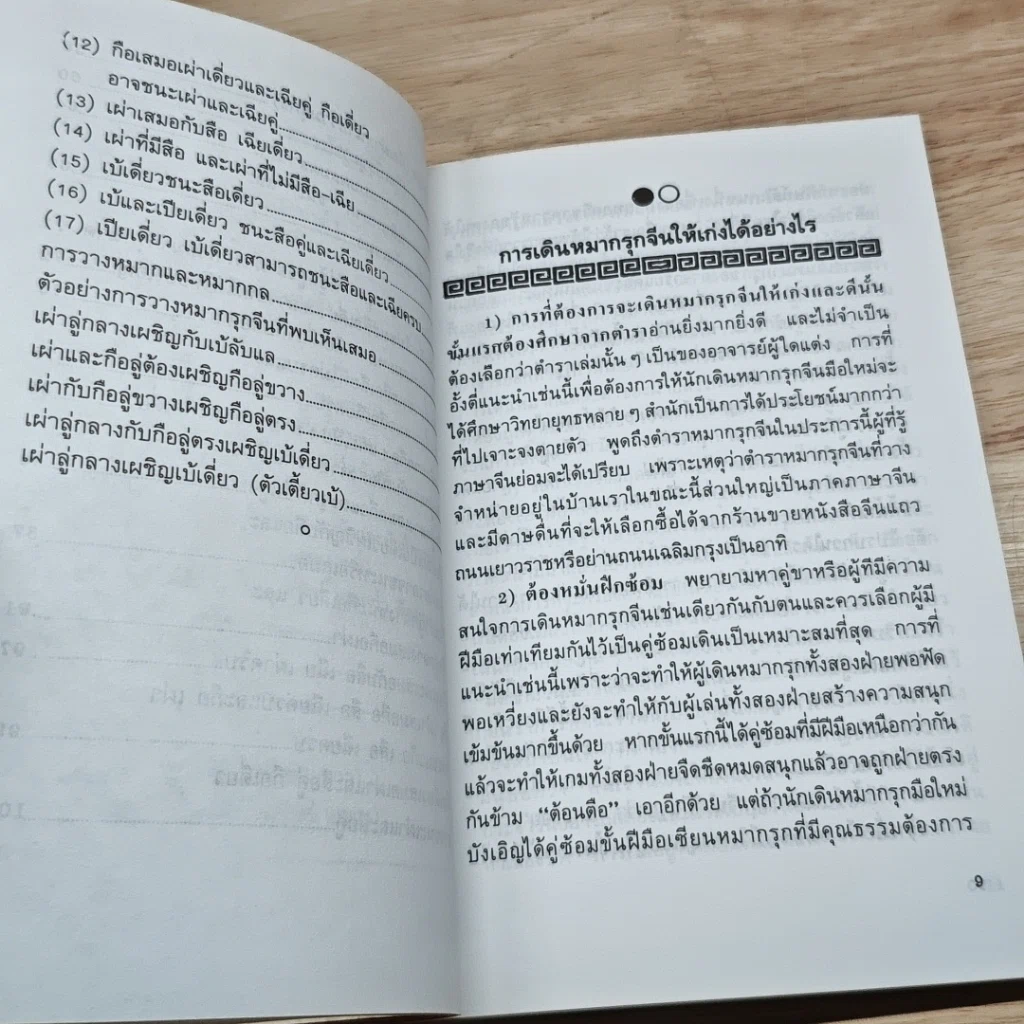 (12) กือเสมอเผ่าเดี่ยวและเฉียคู่ กือเดี่ยว
อาจชนะเผ่าและเฉียคู่
(13) เผ่าเสมอกับสือ เฉียเดี่ยว
(14) เผ่าที่มีสือ และเผ่าที่ไม่มีสือ-เฉีย
(15) เบ้เดี่ยวชนะสือเดี่ยว
(16) เบ้และเปียเดี่ยว ชนะสือคู่และเฉียเดี่ยว
(17) เปียเดี่ยว เบ้เดี่ยวสามารถชนะสือและเฉียครบ
การวางหมากและหมากกล
ตัวอย่างการวางหมากรุกจีนที่พบเห็นเสมอ
เผ่าลู่กลางเผชิญกับเบ้ลับแล
เผ่าและกือลู่ต้องเผชิญกือลู่ขวาง
เผ่ากับกือลู่ขวางเผชิญกือลู่ตรง
เผ่าลู่กลางกับกือลู่ตรงเผชิญเบ้เดี่ยว
เผ่าลู่กลางเผชิญเบ้เดี่ยว (ตัวเดี้ยวเบ้)
การเดินหมากรุกจีนให้เก่งได้อย่างไร
1) การที่ต้องการจะเดินหมากรุกจีนให้เก่งและดีนั้น
ขั้นแรกต้องศึกษาจากตำราอ่านยิ่งมากยิ่งดี และไม่จำเป็น
ต้องเลือกว่าตำราเล่มนั้น ๆ เป็นของอาจารย์ผู้ใดแต่ง การที่
อั้งตี่แนะนำเช่นนี้เพื่อต้องการให้นักเดินหมากรุกจีนมือใหม่จะ
ได้ศึกษาวิทยายุทธหลาย ๆ สำนักเป็นการได้ประโยชน์มากกว่า
ที่ไปเจาะจงตายตัว พูดถึงตำราหมากรุกจีนในประการนี้ผู้ที่รู้
ภาษาจีนย่อมจะได้เปรียบ เพราะเหตุว่าตำราหมากรุกจีนที่วาง
จำหน่ายอยู่ในบ้านเราในขณะนี้ส่วนใหญ่เป็นภาคภาษาจีน
และมีดาษดื่นที่จะให้เลือกซื้อได้จากร้านขายหนังสือจีนแถว
ถนนเยาวราชหรือย่านถนนเฉลิมกรุงเป็นอาทิ
2) ต้องหมั่นฝึกซ้อม พยายามหาคู่ขาหรือผู้ที่มีความ
สนใจการเดินหมากรุกจีนเช่นเดียวกันกับตนและควรเลือกผู้มี
ฝีมือเท่าเทียมกันไว้เป็นคู่ซ้อมเดินเป็นเหมาะสมที่สุด การที่
แนะนำเช่นนี้เพราะว่าจะทำให้ผู้เดินหมากรุกทั้งสองฝ่ายพอฟัด
พอเหวี่ยงและยังจะทำให้กับผู้เล่นทั้งสองฝ่ายสร้างความสนุก
เข้มข้นมากขึ้นด้วย หากขั้นแรกนี้ได้คู่ซ้อมที่มีฝีมือเหนือกว่ากัน
แล้วจะทำให้เกมทั้งสองฝ่ายจืดชืดหมดสนุกแล้วอาจถูกฝ่ายตรง
กันข้าม “ต้อนตือ” เอาอีกด้วย แต่ถ้านักเดินหมากรุกมือใหม่
บังเอิญได้คู่ซ้อมขั้นฝีมือเซียนหมากรุกที่มีคุณธรรมต้องการ
9